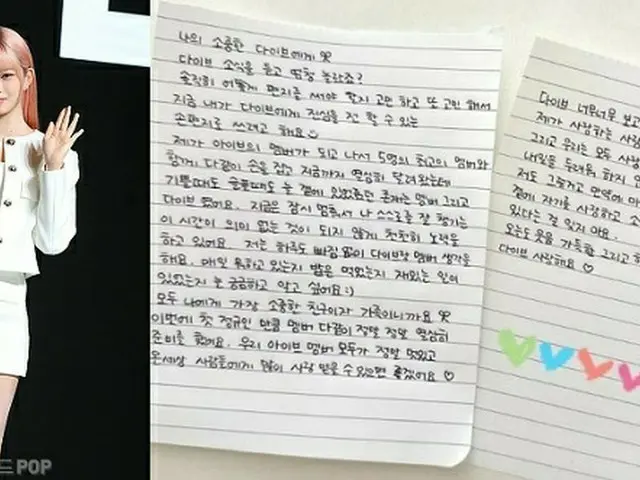 나의 소중한 다이브에게
다이브 소식을 듣고 엄청 놀랐죠?
솔직히 어떻게 편지를 써야 할지 고민 하고 또 고민 해서
지금 내가 다이브에게 진심을 전 할 수 있는
손편지로 쓰려고 해요
제가 아이브의 멤버가 되고 나서 5명의 최고의 멤버와
함께 다같이 손을 잡고 지금까지 열심히 달려왔는데
기쁠때도 슬플때도 늘 곁에 있었줬던 존재는 멤버 그리고
다이브 였어요. 지금은 잠시 멈춰서 나 스스로를 잘 챙기는
이 시간이 의미 없는 것이 되지 않게 천천히 노력을
하고 있어요. 저는 하루도 빠짐 없이 다이브랑 멤버 생각을
해요. 매일 뭐하고 있는지 밥은 먹었는지 재밌는 일이
있었는지 늘 궁금하고 알고 싶어요:)
모두 나에게 가장 소중한 친구이자 가족이니까요
이번에 첫 정규인 만큼 멤버 다같이 정말 정말 열심히
준비를 했어요. 우리 아이브 멤버 모두가 정말 멋있고
온세상 사람들에게 많이 사랑 받을 수 있으면 좋겠어요 ♡
다이브 너무너무 보고
제가 사랑하는 사람
그리고 우리는 모두 사랑
내일을 두려워 하지 안
저도 그렇게고 만약에 마
곁에 자기를 사랑하고 소
있다는 걸 잊지 마요.
오늘도 웃음 가득할 그리고 행
다이브 사랑해요 ♡
드POP